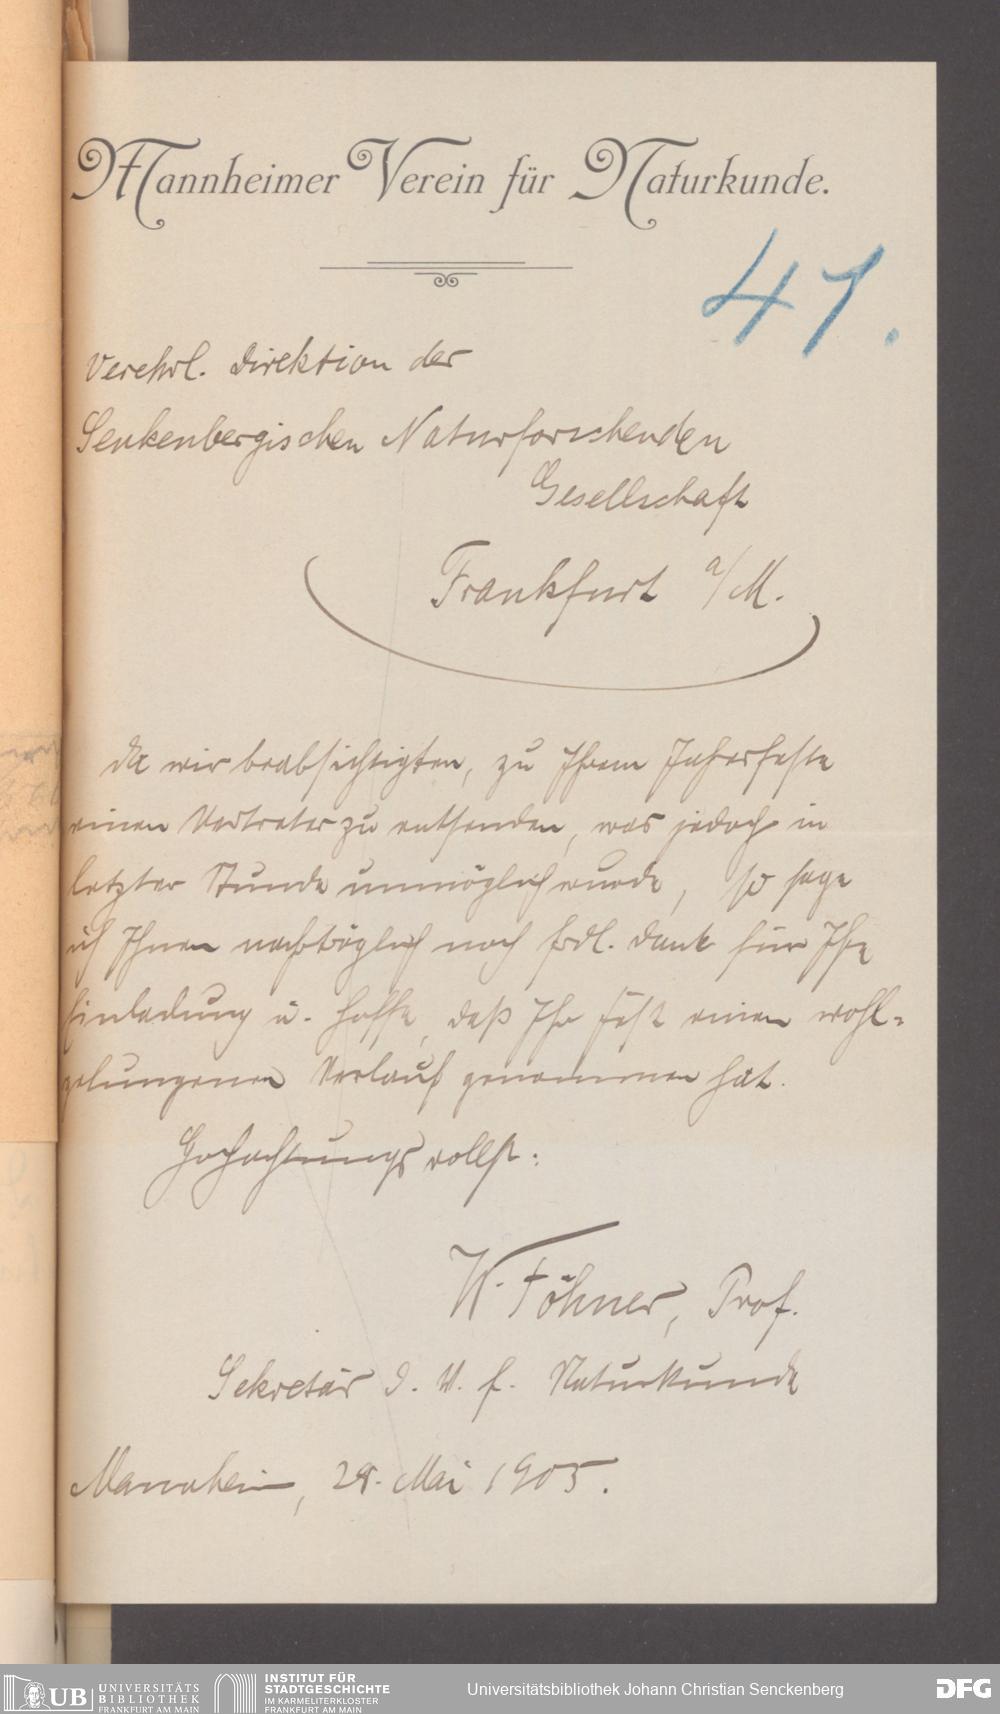 Mannheimer Verein für Naturkunde.
41.
Verehrl. Direktion der
Senkenbergischen Naturforschenden
Gesellschaft
Frankfurt a/M.
Da wir beabsichtigten, zu Ihrem Jahresfeste
einen Vertreter zu entsenden, was jedoch in
letzter Stunde unmöglich wurde, so sage
ich Ihnen nachträglich noch frdl. Dank für Ihre
Einladung u. hoffe, daß Ihr Fest einen wohl-
gelungenen Verlauf genommen hat.
Hochachtungsvollst:
W. Föhner, Prof.
Sekretär d. V. f. Naturkunde
Mannheim, 28. Mai 1905.
UB UNIVERSITÄTS
BIBLIOTHEK
FRANKFURT AM MAIN
INSTITUT FÜR
STADTGESCHICHTE
IM KARMELITERKLOSTER
FRANKFURT AM MAIN
Universitätsbibliothek Johann Christian Senckenberg
DFG